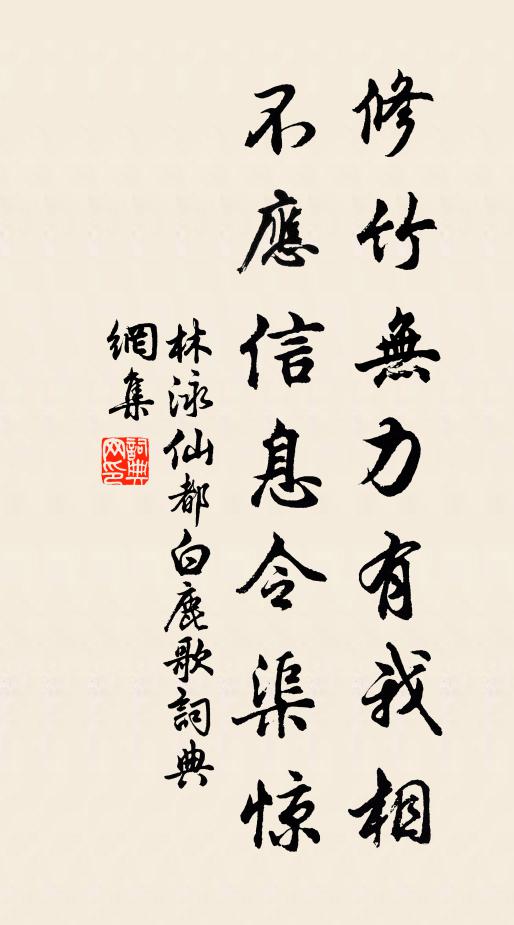 修竹無力有我相
不應信息令渠惊
林泳仙都白鹿歌詞典
網集
詞典网印